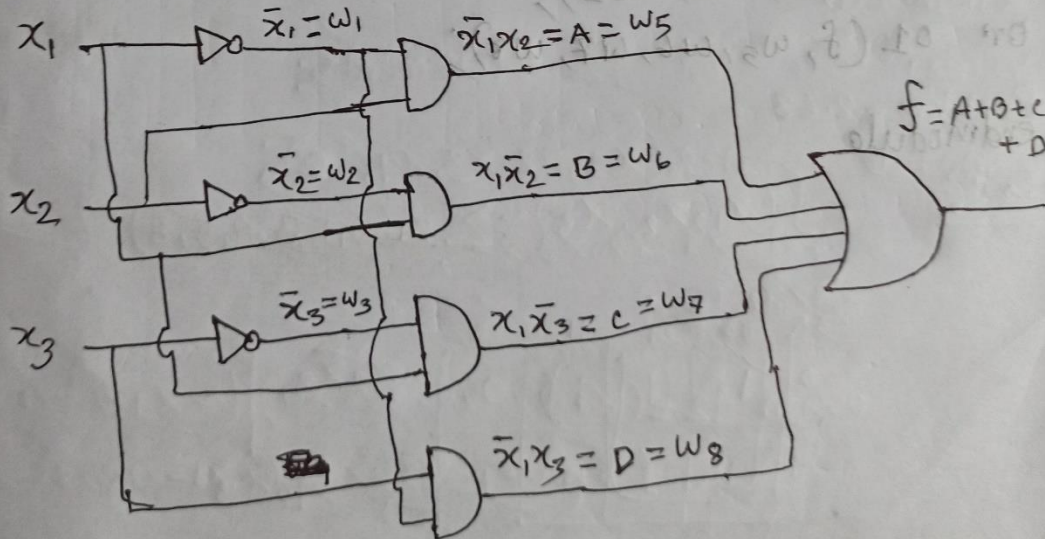 x₁
x̄₁ = w₁
x̄₁x₂ = A = w5
f = A+B+C
+ D
x₂
x̄₂ = w₂
x₁x̄₂ = B = w6
x₃
x̄₃ = w₃
x₁x̄₃ = C = w7
x̄₁x₃ = D = w8